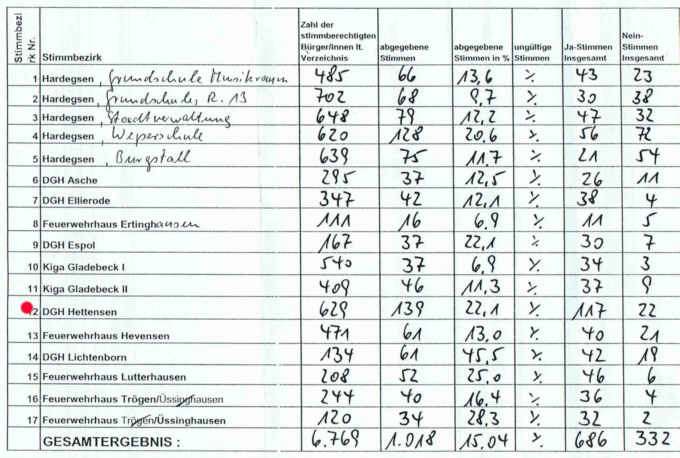 Stimmbezirk Nr. | Stimmbezirk | Zahl der stimmberechtigten Bürger/innen lt. Verzeichnis | abgegebene Stimmen | abgegebene Stimmen in % | ungültige Stimmen | Ja-Stimmen Insgesamt | Nein-Stimmen Insgesamt
1 Hardegsen, Grundschule Musikraum 485 66 13,6 ⁒ 43 23
2 Hardegsen, Grundschule, R. 13 702 68 9,7 ⁒ 30 38
3 Hardegsen, Stadtverwaltung 648 79 12,2 ⁒ 47 32
4 Hardegsen, Weperschule 620 128 20,6 ⁒ 56 72
5 Hardegsen, Burgstall 639 75 11,7 ⁒ 21 54
6 DGH Asche 295 37 12,5 ⁒ 26 11
7 DGH Ellierode 347 42 12,1 ⁒ 38 4
8 Feuerwehrhaus Ertinghausen 111 16 6,9 ⁒ 11 5
9 DGH Espol 167 37 22,1 ⁒ 30 7
10 Kiga Gladebeck I 540 37 6,9 ⁒ 34 3
11 Kiga Gladebeck II 409 46 11,3 ⁒ 37 9
12 DGH Hettensen 629 139 22,1 ⁒ 117 22
13 Feuerwehrhaus Hevensen 471 61 13,0 ⁒ 40 21
14 DGH Lichtenborn 134 61 45,5 ⁒ 42 19
15 Feuerwehrhaus Lutterhausen 208 52 25,0 ⁒ 46 6
16 Feuerwehrhaus Trögen/Üssinghausen 244 40 16,4 ⁒ 36 4
17 Feuerwehrhaus Trögen/Üssinghausen 120 34 28,3 ⁒ 32 2
GESAMTERGEBNIS : 6.769 1.018 15,04 ⁒ 686 332